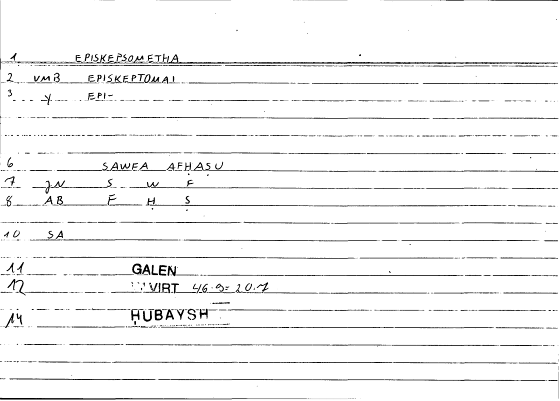 1 EPISKEPSOMETHA
2 VMB EPISKEPTOMAI
3 y EPI-
6 SAWFA AFḤAṢU
7 JN S W F
8 AB F Ḥ Ṣ
10 SA
11 GALEN
12 VIRT 46.9= 20.7
14 ḤUBAYSH